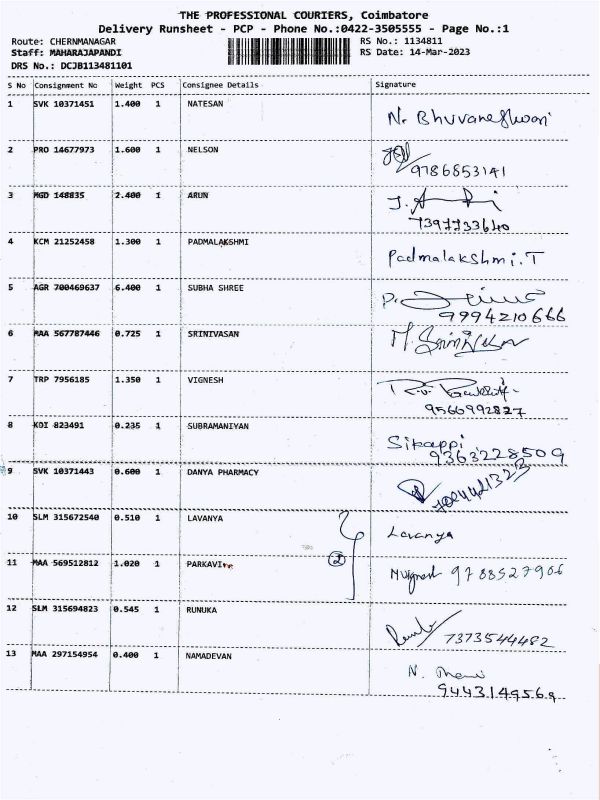 THE PROFESSIONAL COURIERS, Coimbatore
Delivery Runsheet - PCP - Phone No.:0422-3505555 - Page No.:1
Route: CHERNMANAGAR RS No.: 1134811
Staff: MAHARAJAPANDI RS Date: 14-Mar-2023
DRS No.: DCJB113481101
S No Consignment No Weight PCS Consignee Details Signature
1 SVK 10371451 1.400 1 NATESAN N. Bhuvaneshwari
2 PRO 14677973 1.600 1 NELSON
9786853141
3 MGD 148835 2.400 1 ARUN
7397733640
4 KCM 21252458 1.300 1 PADMALAKSHMI Padmalakshmi.T
5 AGR 700469637 6.400 1 SUBHA SHREE
9994210666
6 MAA 567787446 0.725 1 SRINIVASAN M. Srinivasan
7 TRP 7956185 1.350 1 VIGNESH
9560992827
8 KDI 823491 0.235 1 SUBRAMANIYAN Sikappi
9363228509
9 SVK 10371443 0.600 1 DANYA PHARMACY
10 SLM 315672540 0.510 1 LAVANYA Lavanya
11 MAA 569512812 1.020 1 PARKAVI 2 9788527906
12 SLM 315694823 0.545 1 RUNUKA 7373544482
13 MAA 297154954 0.400 1 NAMADEVAN N.
9443149569